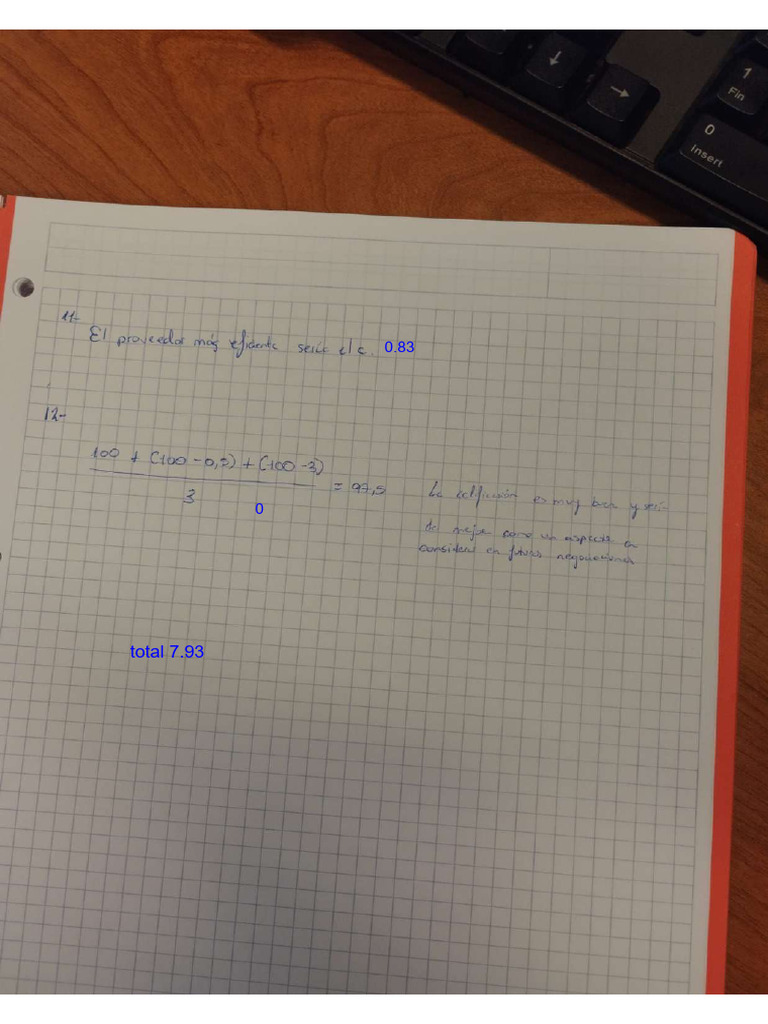 1
Fin
0
Insert
11-
El proveedor más eficiente sería el c. 0.83
12-
100 + (100 - 0,5) + (100 - 3)
3
= 97,5
0
La calificación es muy buena y
mejor como un aspecto a
considerar en futuras negociaciones
total 7.93